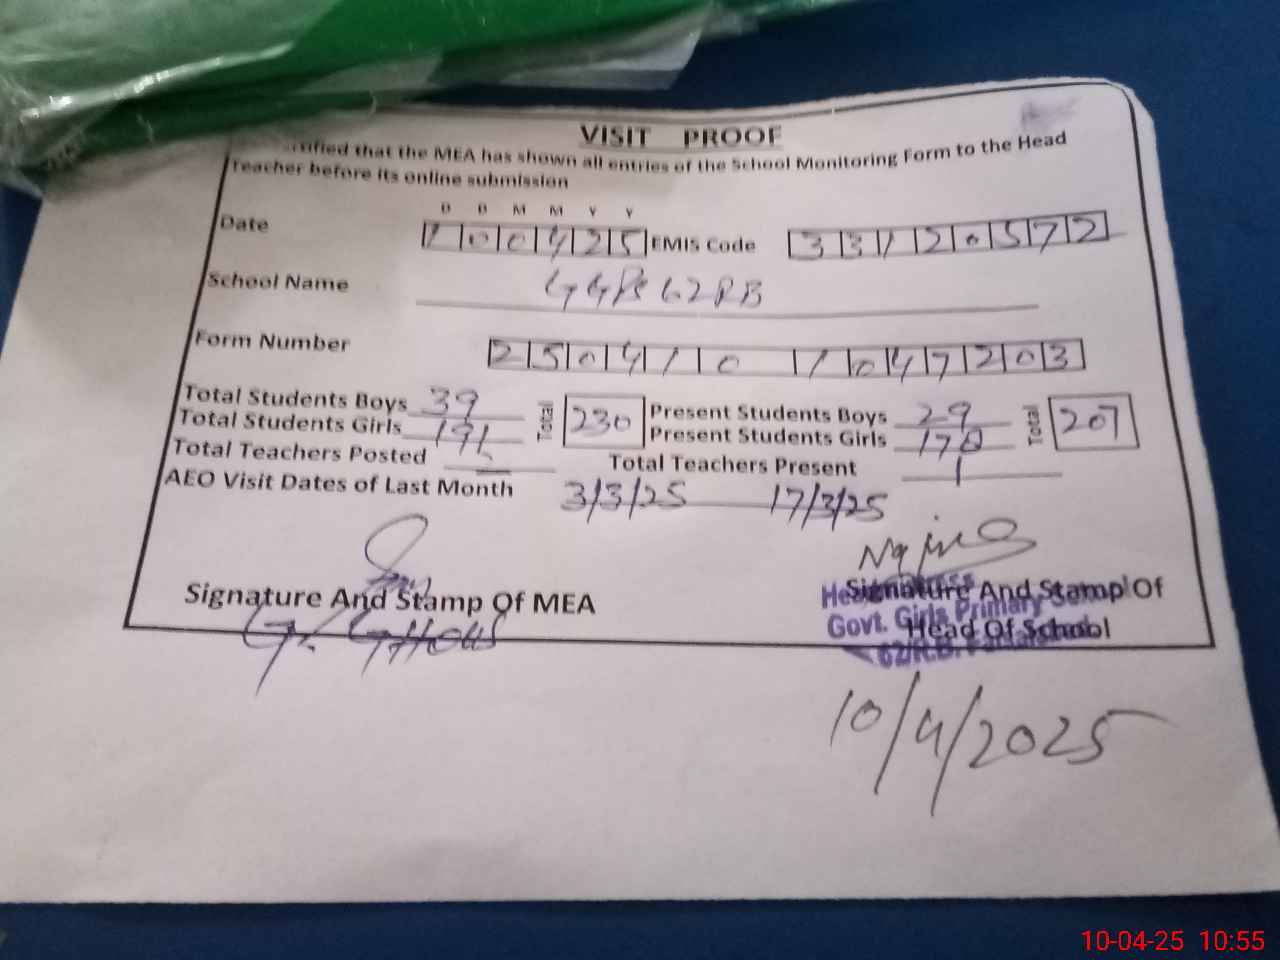 VISIT PROOF
that the MEA has shown all entries of the School Monitoring Form to the Head
Teacher before its online submission
D D M M Y Y
Date 100425 EMIS Code 33120572
School Name GGPS 62RB
Form Number 250410 1047203
Total Students Boys 39 Total 230 Present Students Boys 29 Total 207
Total Students Girls 191 Present Students Girls 178
Total Teachers Posted Total Teachers Present 1
AEO Visit Dates of Last Month 3/3/25 17/3/25
Signature And Stamp Of MEA
Signature And Stamp Of
Head Of School
Govt. Girls Primary
62/R.B.
10/4/2025
10-04-25 10:55